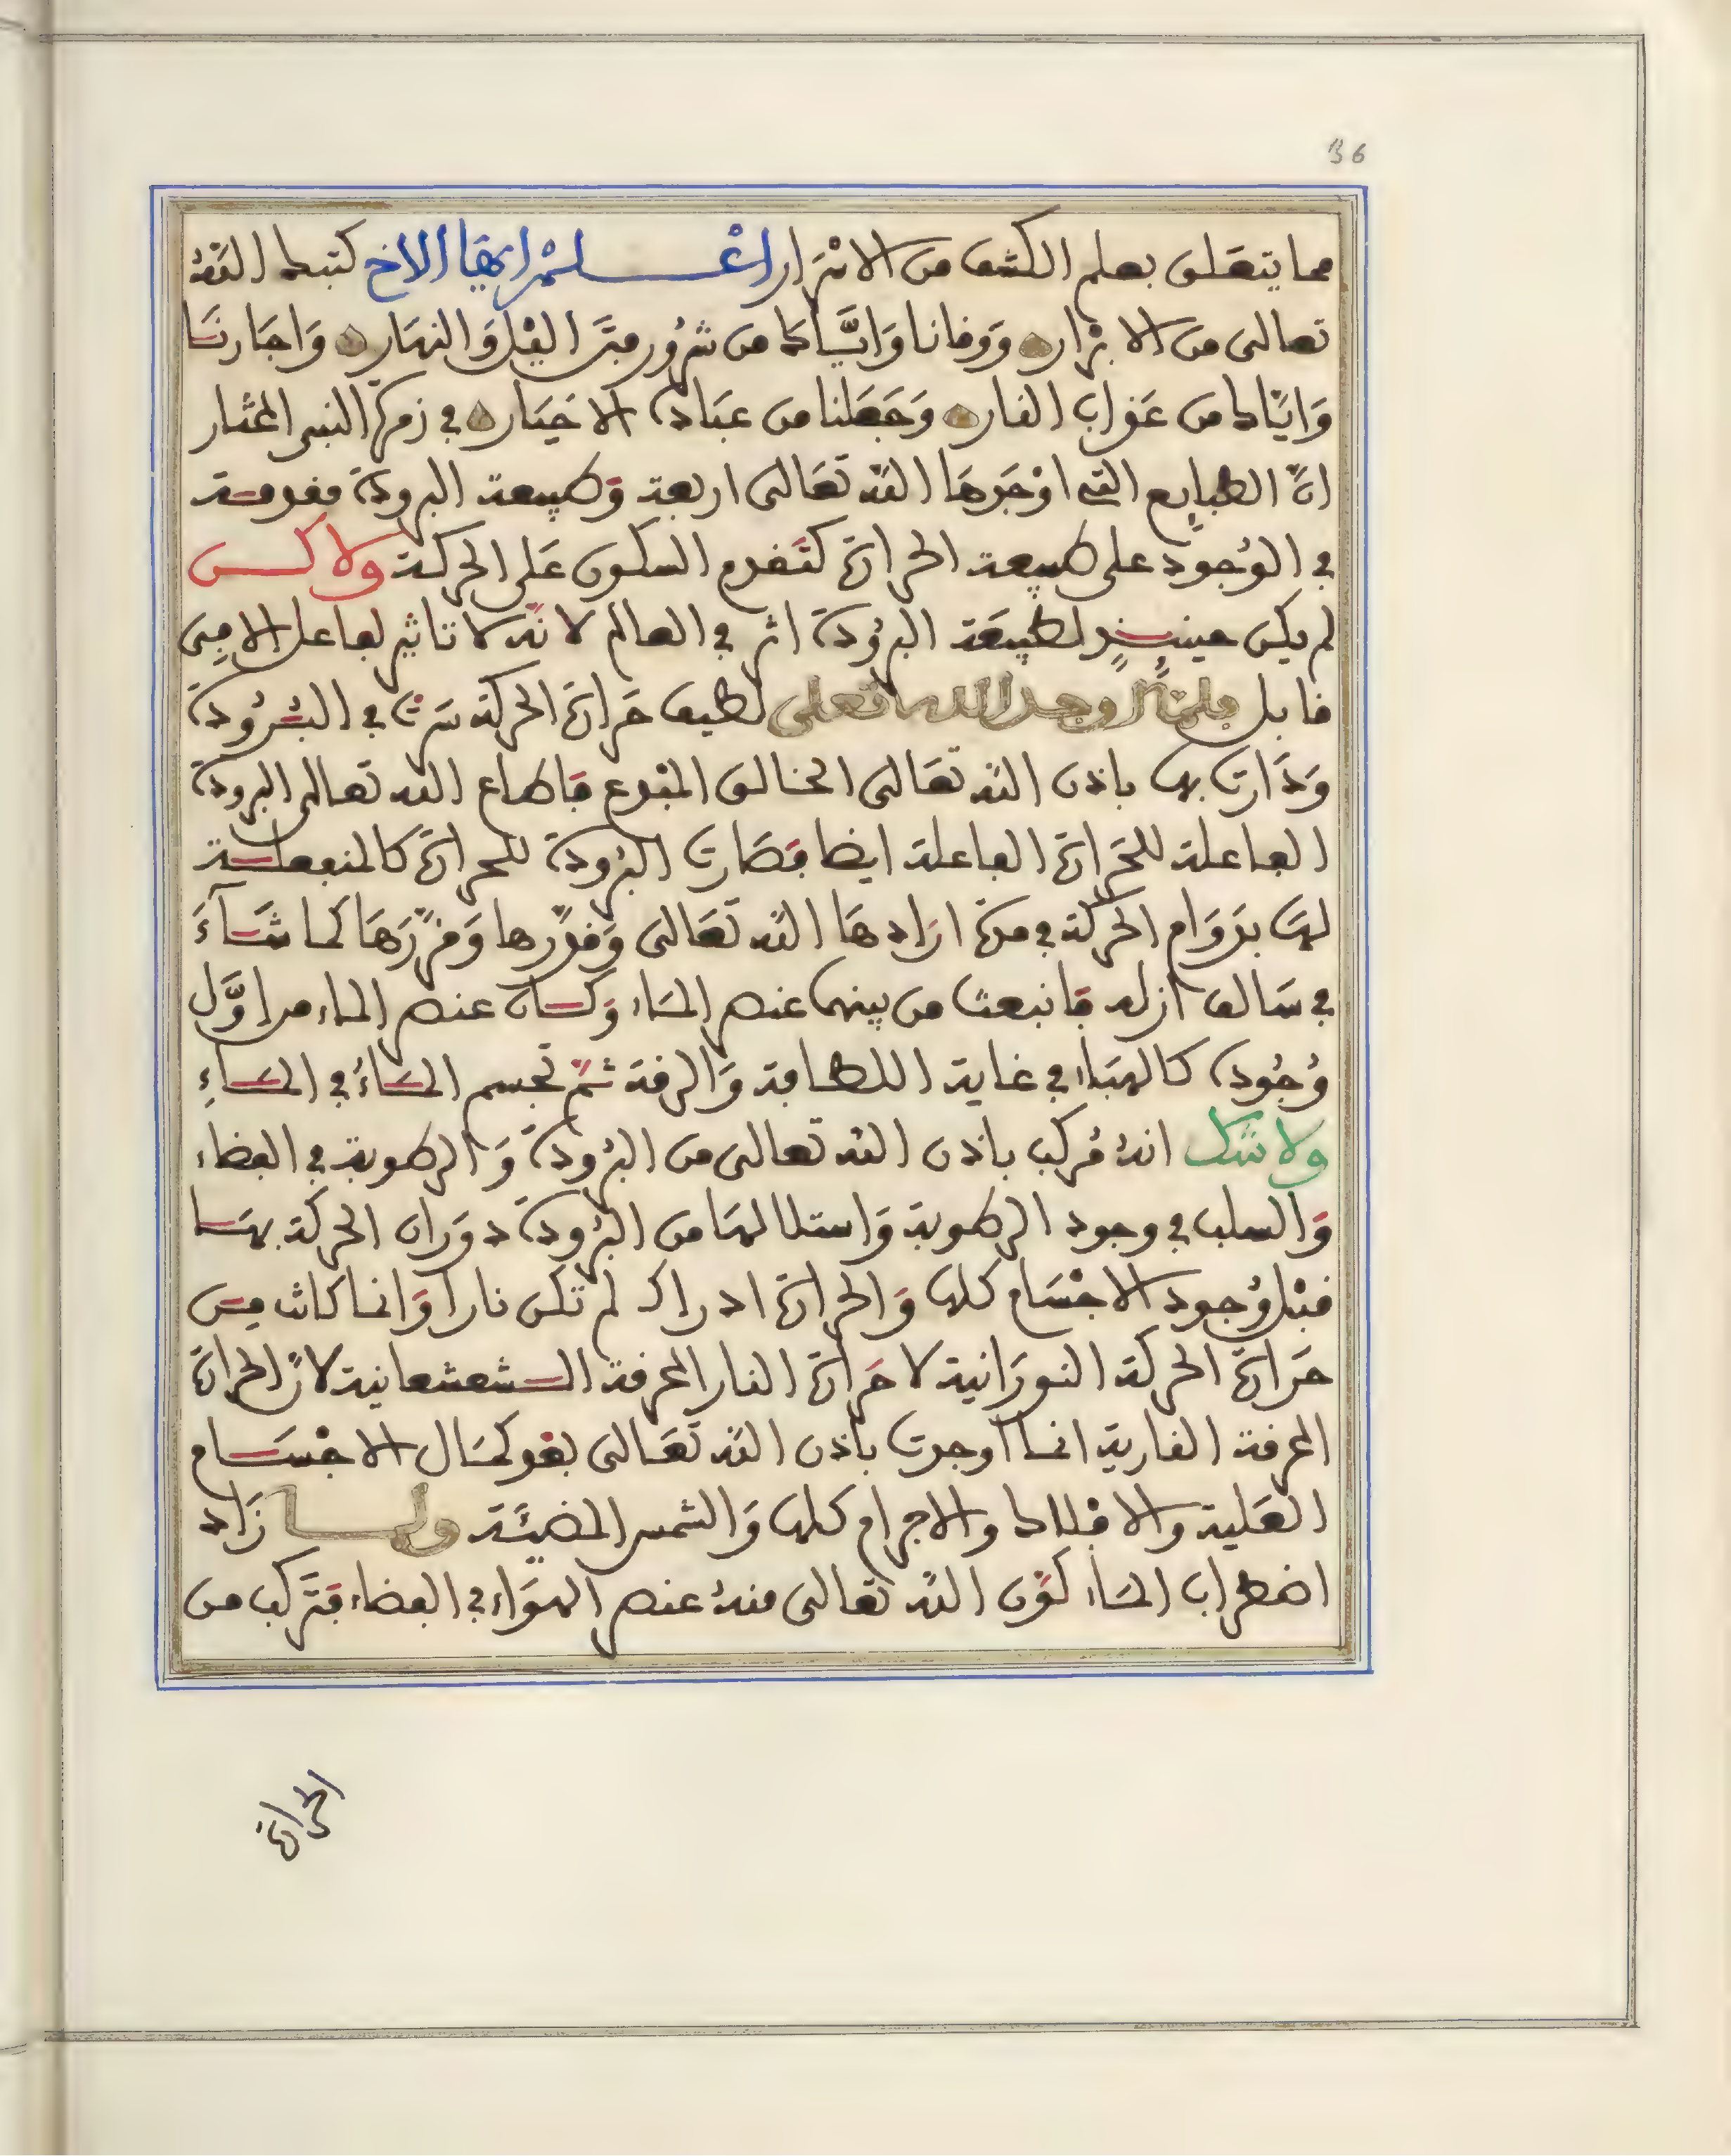 36
مما يتعلق بعلم الكشف من الاسْرَار اعْلمْ ايها الاخ كتبك اللّهُ
تعالى من الابْرار ووقانا وَايَّاك من شرُور فتَن الليْل وَالنهَار وَاجَارنَا
وَايَّاك من عَذاب النار وَجَعَلنا من عبَاده الاخيَار في زمرة النبي المختار
انَّ الطبايع التي اوْجَدهَا اللّه تعَالى اربعة وَطبيعة البرودة مقدمة
في الوُجُود على طبيعة الحرارة كتَقدم السكون عَلى الحركة ولاكن
لم يكن حينئذٍ لطبيعَة البرُودة اثر في العالم لانّه لا تاثير لفاعل الا في
قابل فلمَّا اوجد الله تعلى لطيف حَرارة الحركة سَرت في البُرُودة
وَدَارت بها باذن اللّه تعَالى الخالق المبْدع فاطاع اللّه تعالى البرودة
الفاعلة للحَرارة الفاعلة ايضا فصَارت البرُودة للحرارة كالمنفعلة
لهَا بدَوَام الحركة في مدة ارَادهَا اللّه تعَالى وَقدَّرها وَقرَّرَهَا كما شَآءَ
في سَالف ازله فانبعث من بينهما عنصر المَاء وَكان عنصر الماء من اوَّل
وُجُوده كالهبَاء في غاية اللطافة وَالرقة ثمّ تجسم المَاءُ في المَاءِ
ولا شك انهُ مُركب باذن اللّه تعالى من البرُودة وَالرطوبة في الفضاء
وَالسلب في وجود الرطوبة وَاستلالهَا من البرُودة دوَران الحركة بهَا
قبْل وُجود الاجْسَام كلها وَالحرارة اد راك لم تكن نارا وَانما كانت من
حَرارة الحركة النورَانية لا حَرارة النار المحرقة الشعشعانية لانّ الحرارة
المحرقة النارية انما اوجدت باذن اللّه تعَالى بعْد كمَال الاجْسَام
العَلية والافلاك والاجرام كلها وَالشمس المضيئَة ولما زَاد
اضطراب المَاء كوّن اللّه تعالى منهُ عنصر الهوَاء في الفضاء فتَركب من
الحرارة